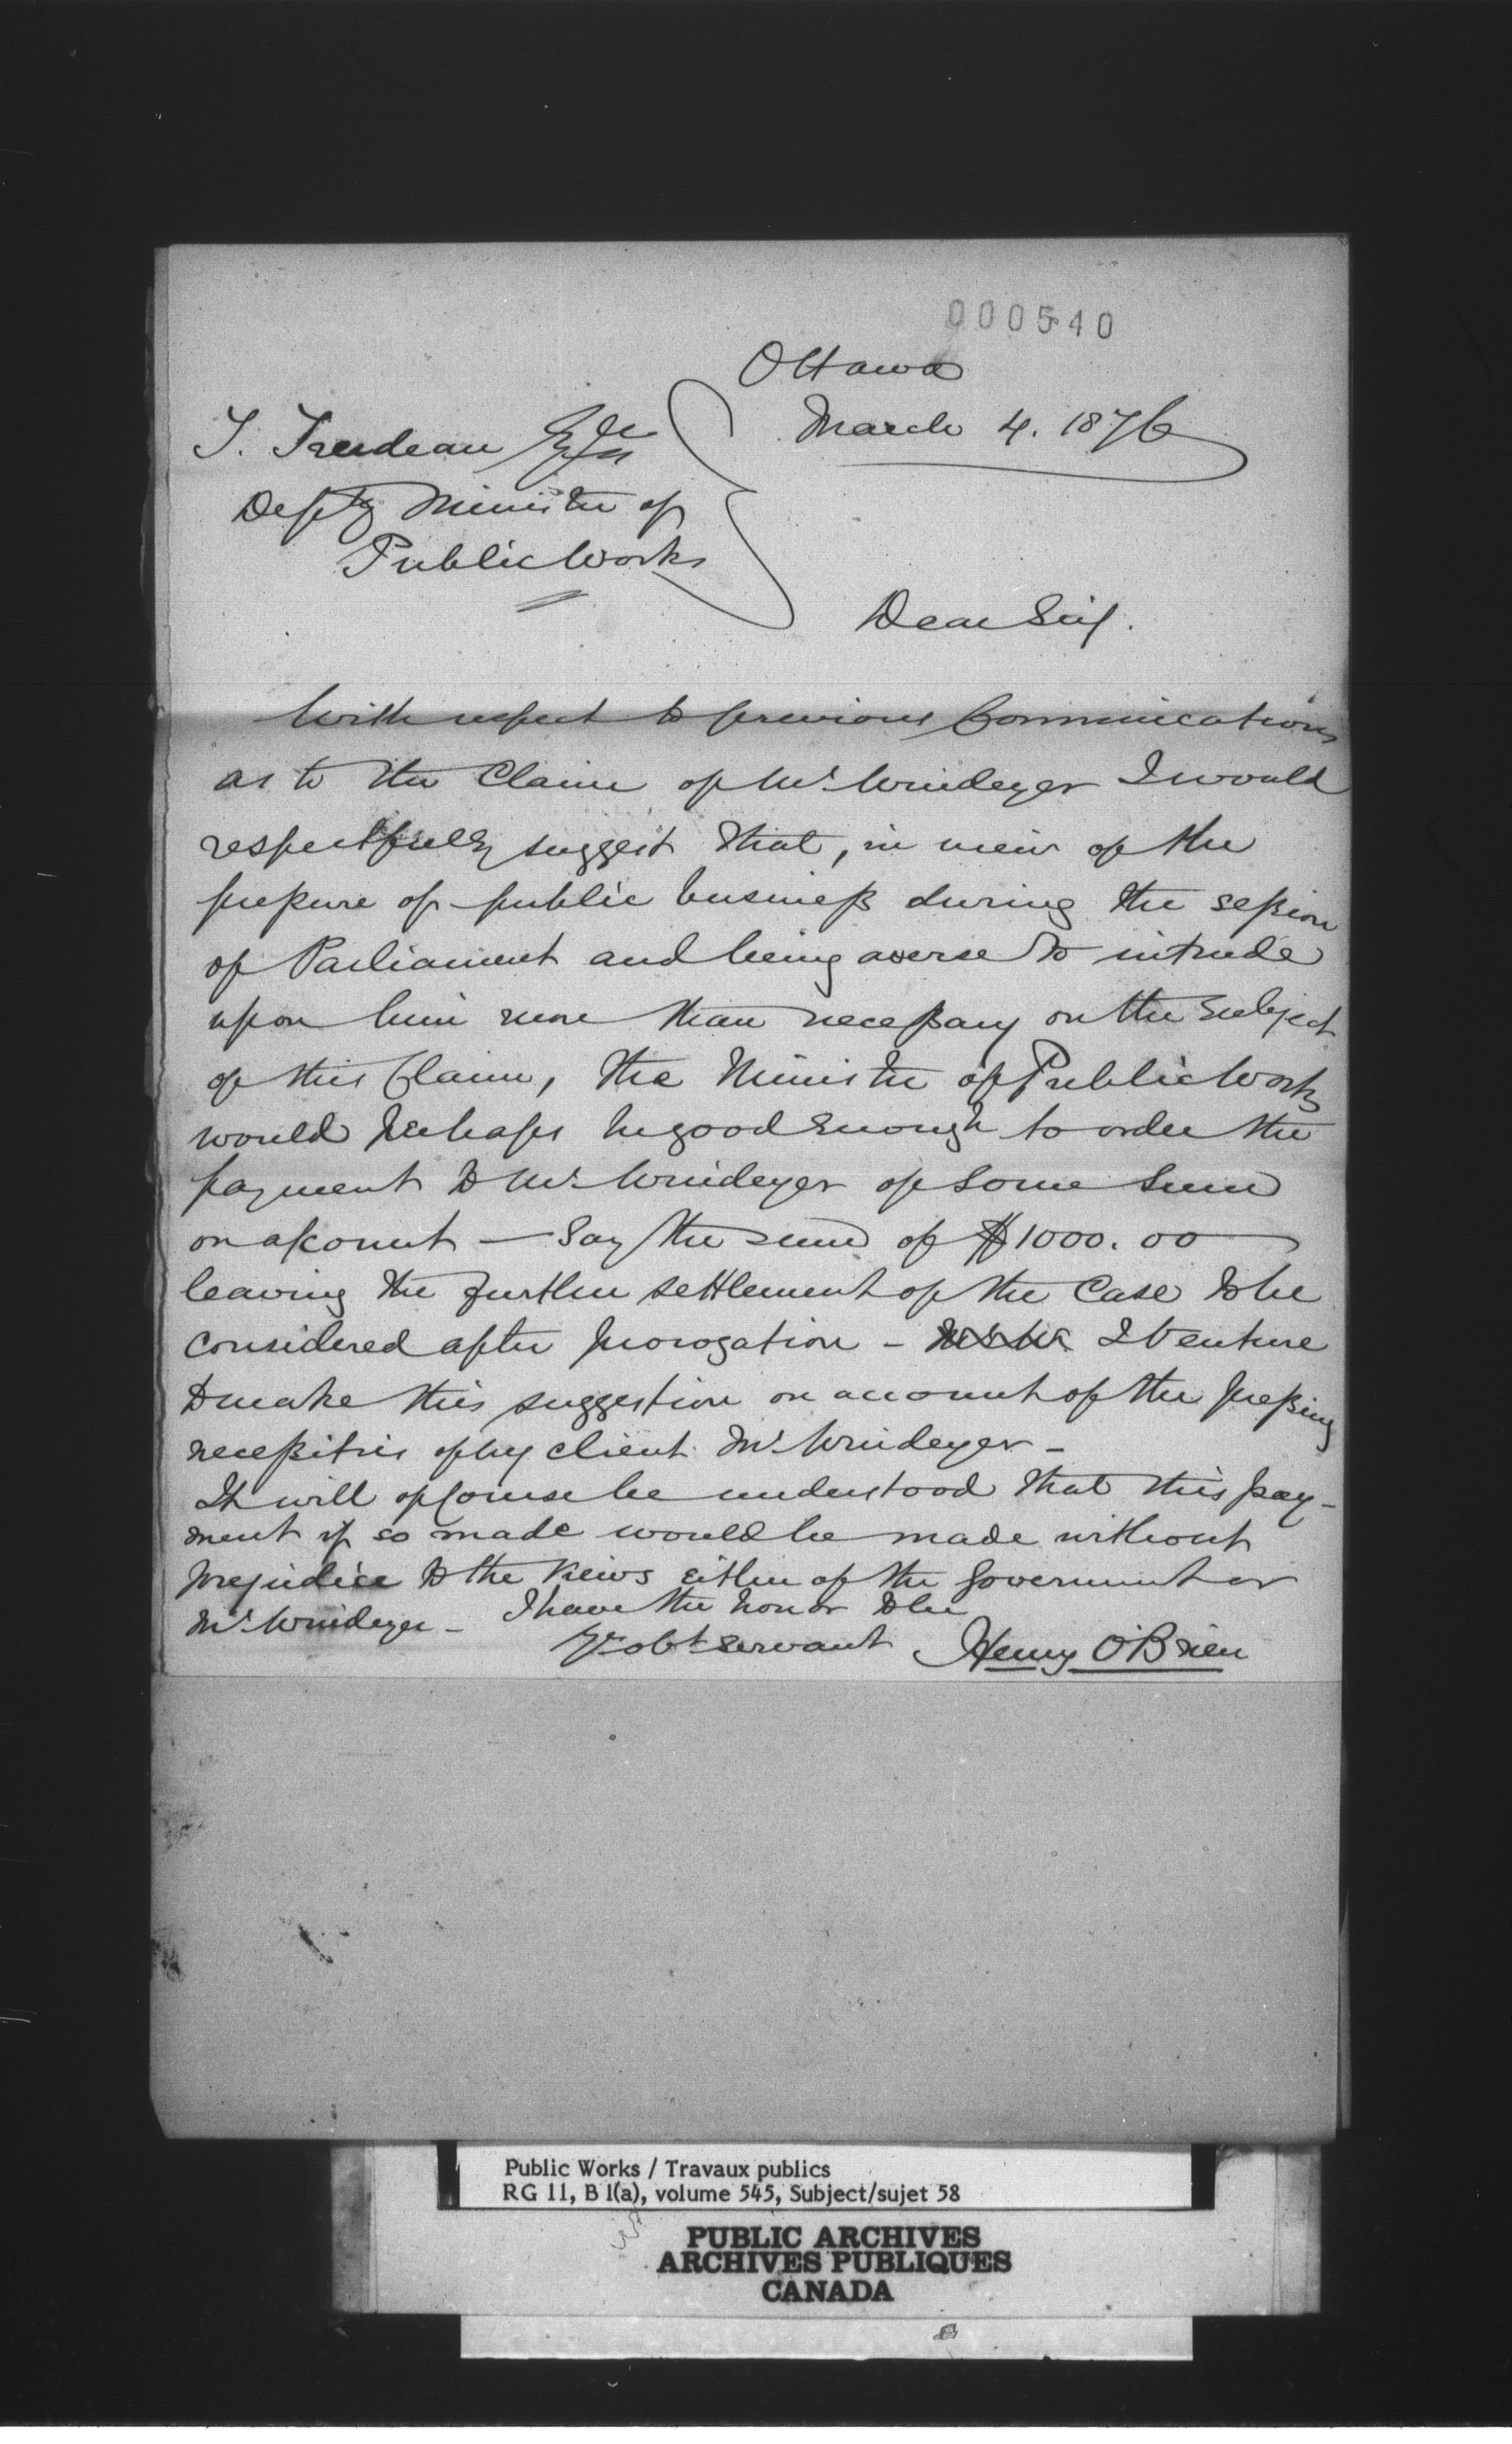 000540
Ottawa
March 4. 1876
T. Trudeau Esqre
Depty Minister of
Public Works
Dear Sir,
With respect to previous Communications
as to the Claim of Mr. Windeyer I would
respectfully suggest that, in view of the
pressure of public business during the session
of Parliament and being averse to intrude
upon him more than necessary on the subject
of this Claim, the Minister of Public Works
would perhaps be good enough to order the
payment to Mr. Windeyer of some sum
on account — Say the sum of $1000.00
leaving the further settlement of the Case to be
considered after prorogation - I venture
to make this suggestion on account of the pressing
necessities of my client Mr. Windeyer -
It will of course be understood that this pay-
ment if so made would be made without
prejudice to the views either of the Government or
Mr. Windeyer - I have the honor to be
Yr obt servant Henry O'Brien
Public Works / Travaux publics
RG 11, B 1(a), volume 545, Subject/sujet 58
PUBLIC ARCHIVES
ARCHIVES PUBLIQUES
CANADA